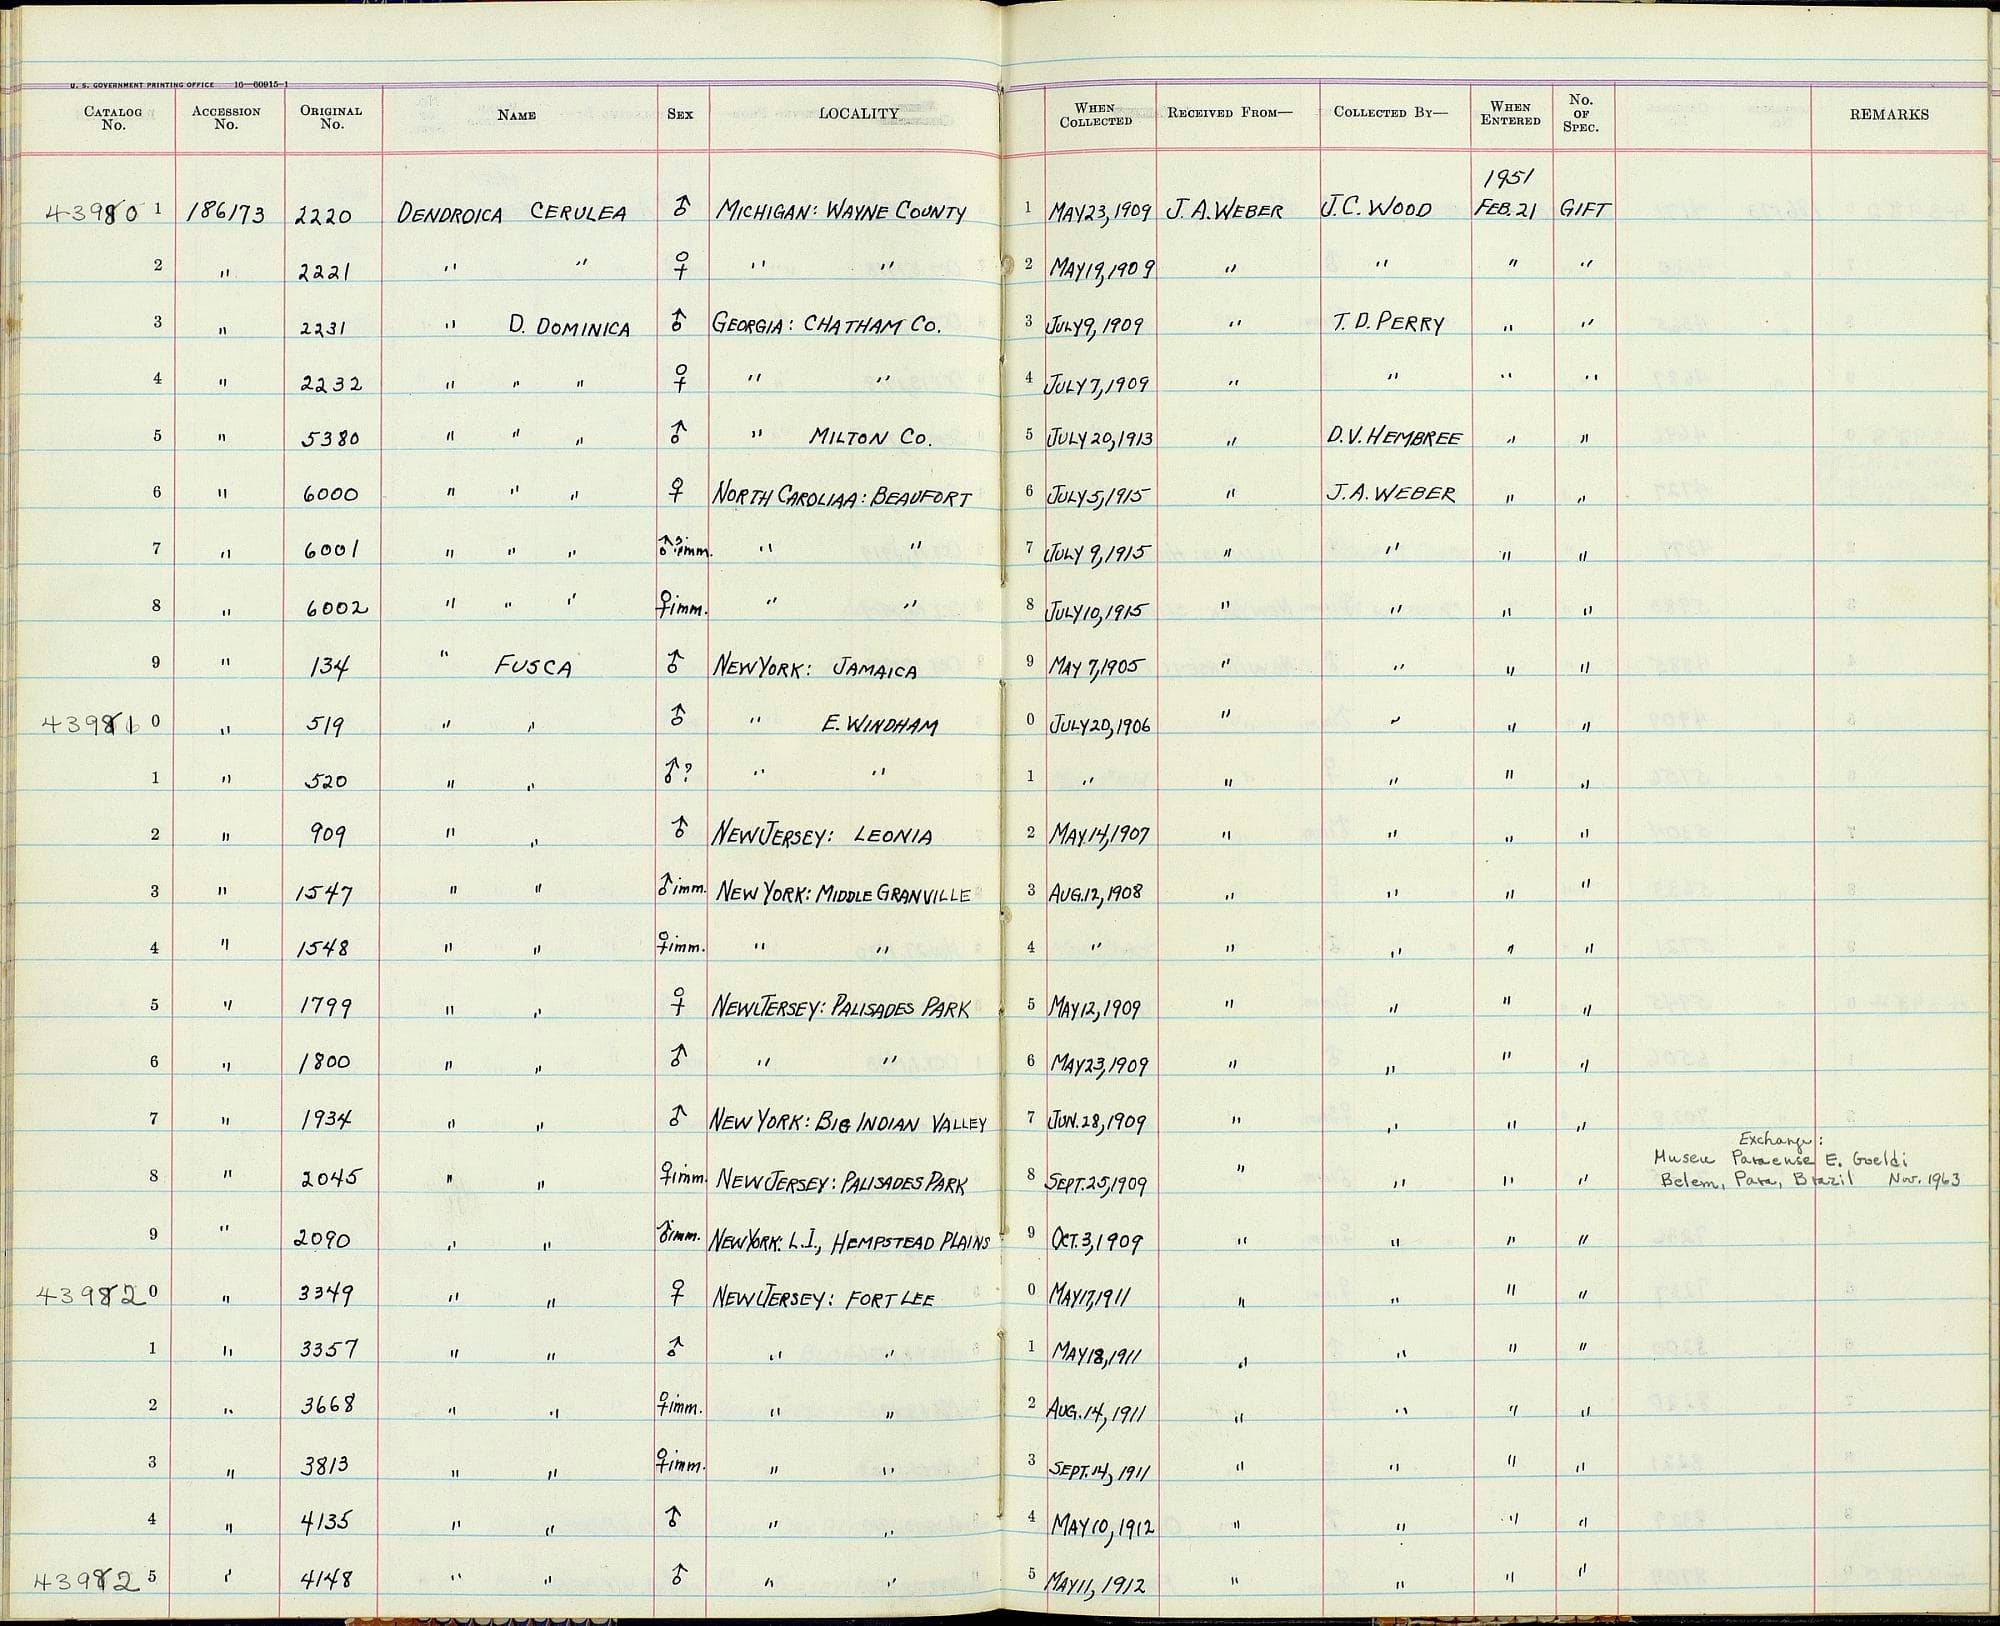 U. S. GOVERNMENT PRINTING OFFICE 16—60915-1
CATALOG No. ACCESSION No. ORIGINAL No. NAME SEX LOCALITY WHEN COLLECTED RECEIVED FROM— COLLECTED BY— WHEN ENTERED No. OF SPEC. REMARKS
1951
43980 1 186173 2220 DENDROICA CERULEA ♂ MICHIGAN: WAYNE COUNTY 1 MAY 23, 1909 J. A. WEBER J. C. WOOD FEB. 21 GIFT
2 " 2221 " " ♀ " " 2 MAY 19, 1909 " " " "
3 " 2231 " D. DOMINICA ♂ GEORGIA: CHATHAM CO. 3 JULY 9, 1909 " T. D. PERRY " "
4 " 2232 " " " ♀ " " 4 JULY 7, 1909 " " " "
5 " 5380 " " " ♂ " MILTON CO. 5 JULY 20, 1913 " D. V. HEMBREE " "
6 " 6000 " " " ♀ NORTH CAROLIAA: BEAUFORT 6 JULY 5, 1915 " J. A. WEBER " "
7 " 6001 " " " ♂? imm. " " 7 JULY 9, 1915 " " " "
8 " 6002 " " " ♀ imm. " " 8 JULY 10, 1915 " " " "
9 " 134 " FUSCA ♂ NEW YORK: JAMAICA 9 MAY 7, 1905 " " " "
43981 0 " 519 " " ♂ " E. WINDHAM 0 JULY 20, 1906 " " " "
1 " 520 " " ♂? " " 1 " " " " "
2 " 909 " " ♂ NEW JERSEY: LEONIA 2 MAY 14, 1907 " " " "
3 " 1547 " " ♂ imm. NEW YORK: MIDDLE GRANVILLE 3 AUG. 12, 1908 " " " "
4 " 1548 " " ♀ imm. " " 4 " " " " "
5 " 1799 " " ♀ NEW JERSEY: PALISADES PARK 5 MAY 12, 1909 " " " "
6 " 1800 " " ♂ " " 6 MAY 23, 1909 " " " "
7 " 1934 " " ♂ NEW YORK: BIG INDIAN VALLEY 7 JUN. 28, 1909 " " " "
Exchange:
Museu Paraense E. Goeldi
8 " 2045 " " ♀ imm. NEW JERSEY: PALISADES PARK 8 SEPT. 25, 1909 " " " " Belem, Para, Brazil Nov. 1963
9 " 2090 " " ♂ imm. NEW YORK: L.I., HEMPSTEAD PLAINS 9 OCT. 3, 1909 " " " "
43982 0 " 3349 " " ♀ NEW JERSEY: FORT LEE 0 MAY 17, 1911 " " " "
1 " 3357 " " ♂ " " 1 MAY 18, 1911 " " " "
2 " 3668 " " ♀ imm. " " 2 AUG. 14, 1911 " " " "
3 " 3813 " " ♀ imm. " " 3 SEPT. 14, 1911 " " " "
4 " 4135 " " ♂ " " 4 MAY 10, 1912 " " " "
43982 5 " 4148 " " ♂ " " 5 MAY 11, 1912 " " " "